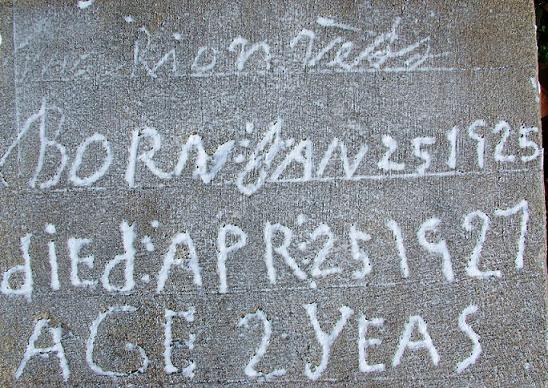 BORN:JAN 25 1925
dIEd:APR:25 1927
AGE 2 YEAS